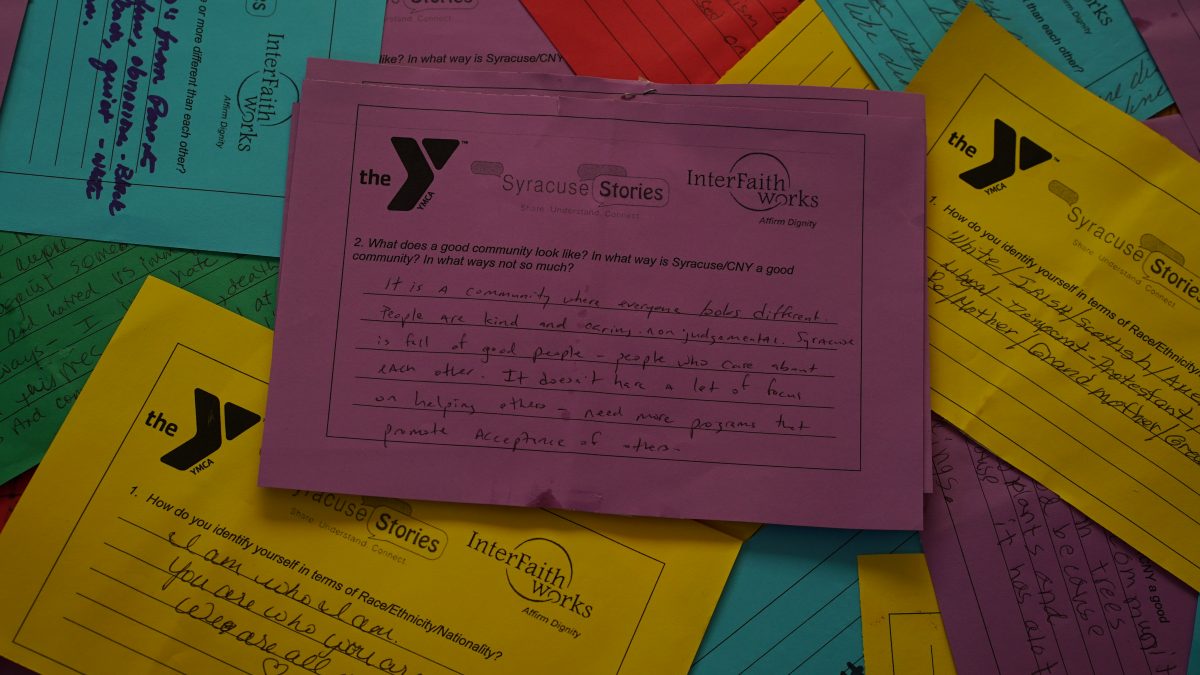 or more different than each other?
InterFaith
Works
Affirm Dignity
from Parents
quiet - White
like? In what way is Syracuse/CNY
than each other?
Works
Affirm Dignity
the Y
YMCA
Syracuse Stories
Share. Understand. Connect.
InterFaith
Works
Affirm Dignity
2. What does a good community look like? In what way is Syracuse/CNY a good
community? In what ways not so much?
It is a community where everyone looks different.
People are kind and caring. non judgemental. Syracuse
is full of good people - people who care about
each other. It doesn't have a lot of focus
on helping others - need more programs that
promote Acceptance of others.
the Y
YMCA
Syracuse Stories
Share. Understand. Connect.
1. How do you identify yourself in terms of Race/Ethnicity/
White/IRISH Scottish/
Liberal - Democrat - Protestant
/Mother/Grandmother/
and hatred vs
the Y
YMCA
Syracuse Stories
Share. Understand. Connect.
InterFaith
Works
Affirm Dignity
1. How do you identify yourself in terms of Race/Ethnicity/Nationality?
I am who I am.
You are who you are
We are all
CNY a good
trees
because
plants and
it has